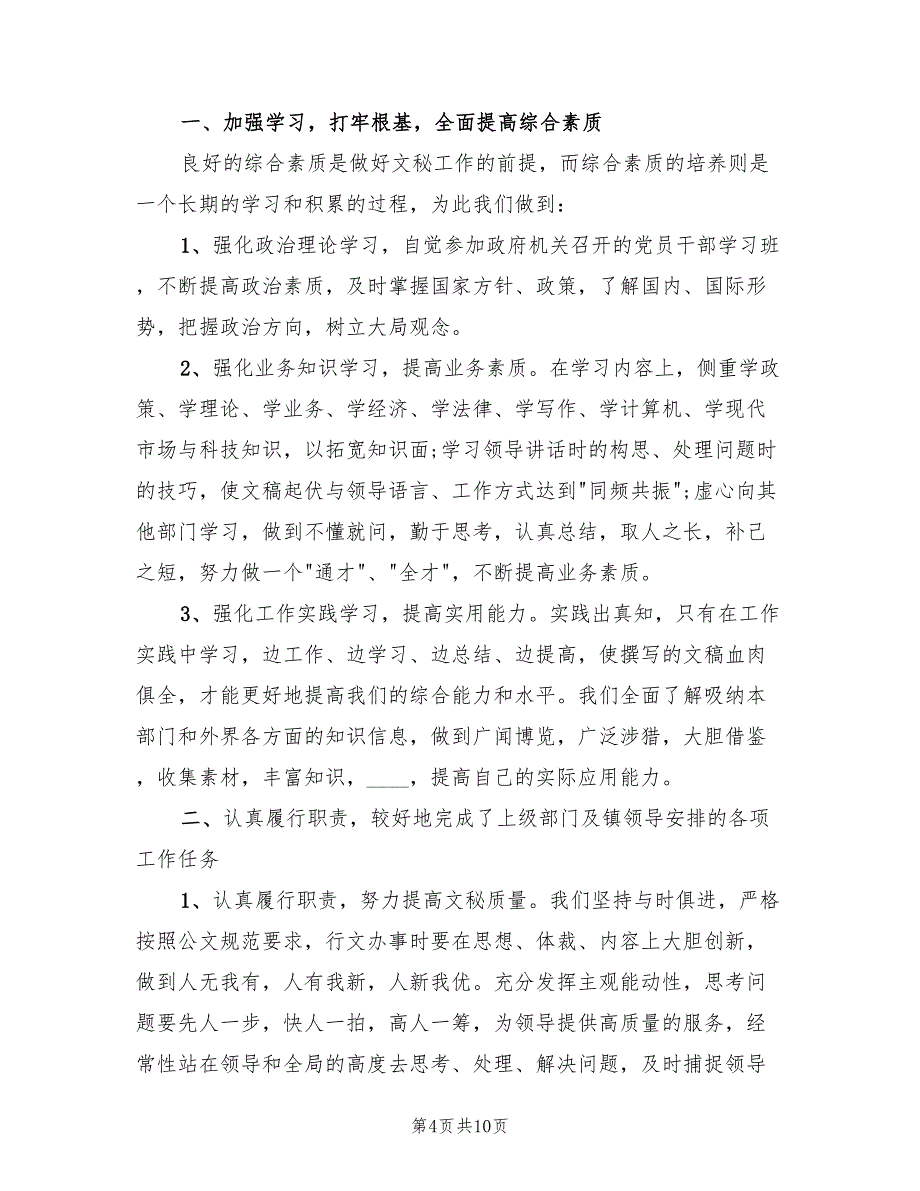 一、加强学习，打牢根基，全面提高综合素质
良好的综合素质是做好文秘工作的前提，而综合素质的培养则是
一个长期的学习和积累的过程，为此我们做到：
1、强化政治理论学习，自觉参加政府机关召开的党员干部学习班
，不断提高政治素质，及时掌握国家方针、政策，了解国内、国际形
势，把握政治方向，树立大局观念。
2、强化业务知识学习，提高业务素质。在学习内容上，侧重学政
策、学理论、学业务、学经济、学法律、学写作、学计算机、学现代
市场与科技知识，以拓宽知识面;学习领导讲话时的构思、处理问题时
的技巧，使文稿起伏与领导语言、工作方式达到"同频共振";虚心向其
他部门学习，做到不懂就问，勤于思考，认真总结，取人之长，补己
之短，努力做一个"通才"、"全才"，不断提高业务素质。
3、强化工作实践学习，提高实用能力。实践出真知，只有在工作
实践中学习，边工作、边学习、边总结、边提高，使撰写的文稿血肉
俱全，才能更好地提高我们的综合能力和水平。我们全面了解吸纳本
部门和外界各方面的知识信息，做到广闻博览，广泛涉猎，大胆借鉴
，收集素材，丰富知识，____，提高自己的实际应用能力。
二、认真履行职责，较好地完成了上级部门及镇领导安排的各项
工作任务
1、认真履行职责，努力提高文秘质量。我们坚持与时俱进，严格
按照公文规范要求，行文办事时要在思想、体裁、内容上大胆创新，
做到人无我有，人有我新，人新我优。充分发挥主观能动性，思考问
题要先人一步，快人一拍，高人一筹，为领导提供高质量的服务，经
常性站在领导和全局的高度去思考、处理、解决问题，及时捕捉领导
第4页共10页